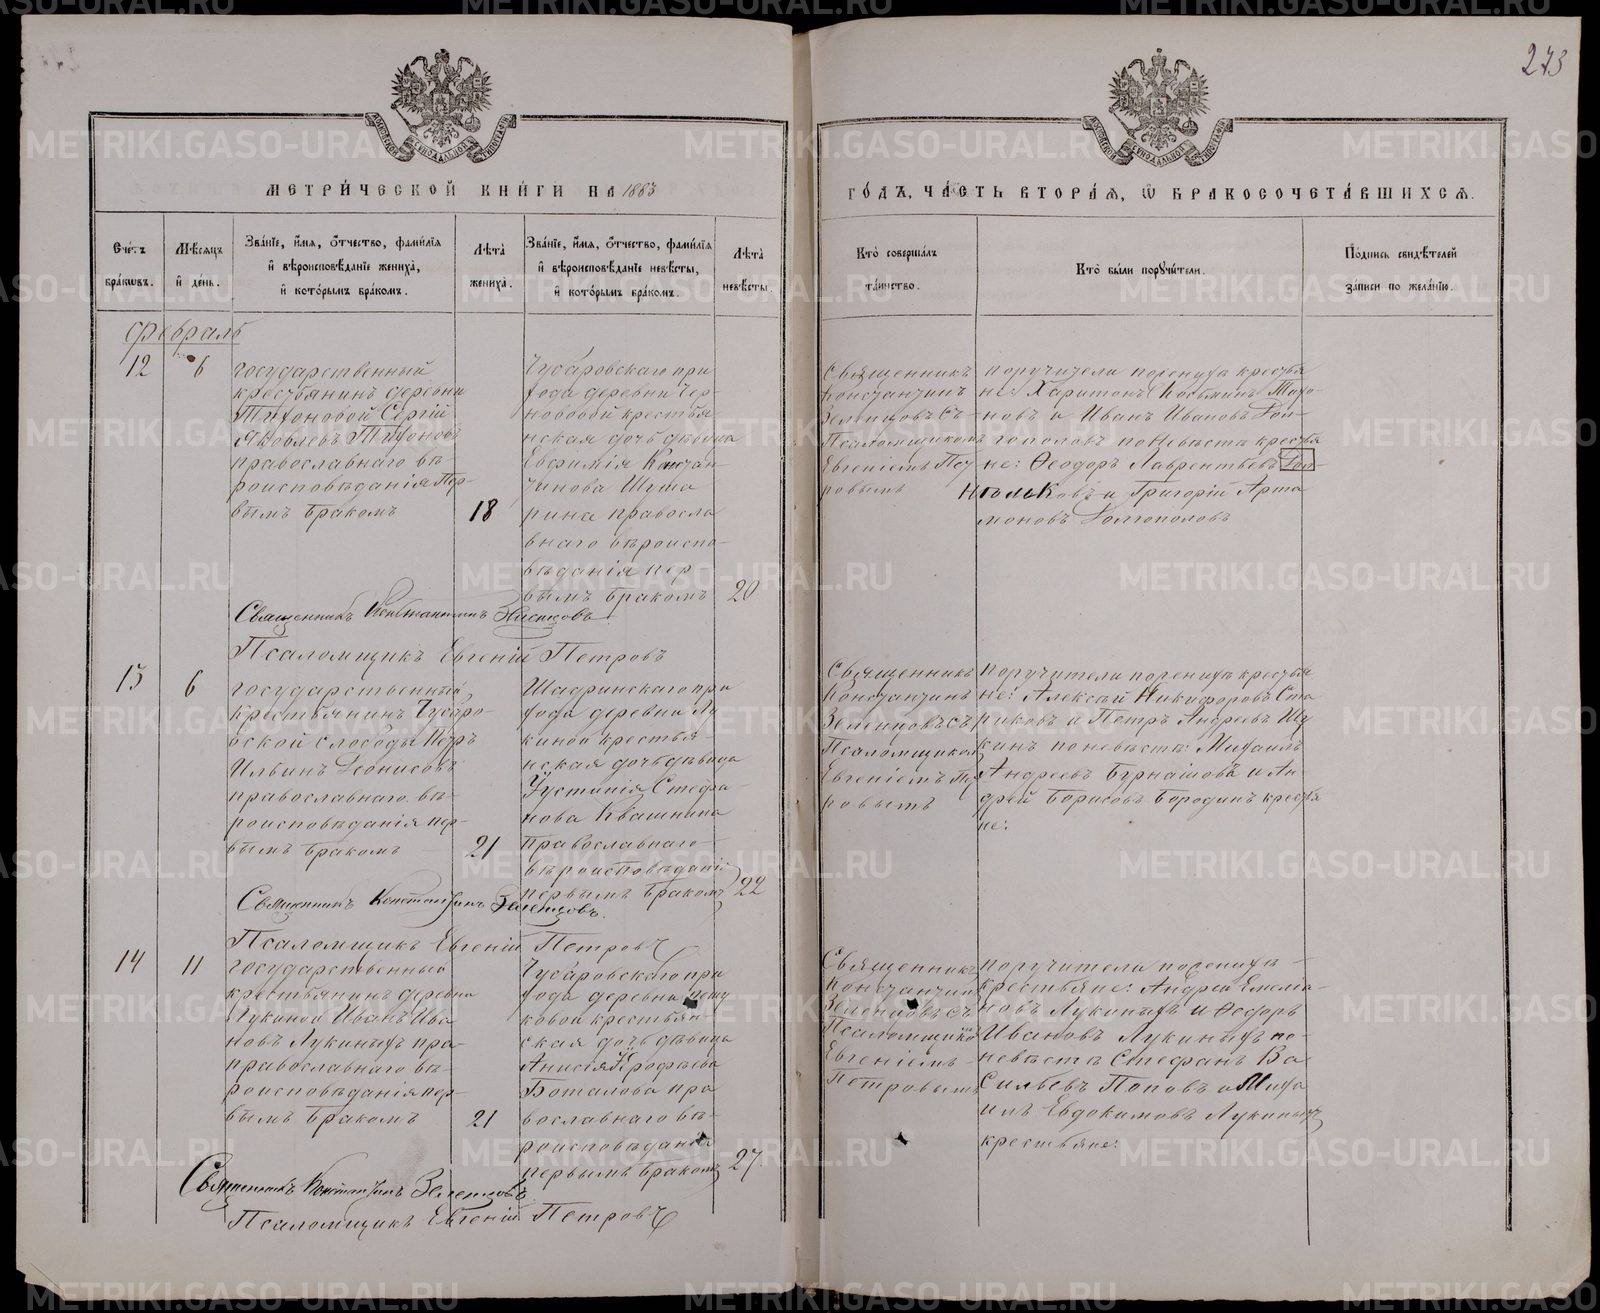 273
МЕТРИ́ЧЕСКОЙ КНИ́ГИ НА 1883
ГО́ДЪ, ЧА́СТЬ ВТОРА́Я, Ѡ БРАКОСОЧЕТА́ВШИХСЯ.
Сче́тъ бра́кѡвъ.
Мѣ́сяцъ и҆ де́нь.
Зва́нїе, и҆́мя, ѻ҆́тчество, фами́лїя
и҆ вѣроисповѣ́данїе жениха̀,
и҆ кото́рымъ бра́комъ.
Лѣ́та жениха̀.
Зва́нїе, и҆́мя, ѻ҆́тчество, фами́лїя
и҆ вѣроисповѣ́данїе невѣ́сты,
и҆ кото́рымъ бра́комъ.
Лѣ́та невѣ́сты.
Кто̀ соверша́лъ
та́инство.
Кто̀ бы́ли порꙋчи́тели.
По́дпись свидѣ́телей
за́писи по жела́нїю.
Февраль
12
6
государственный
крестьянинъ деревни
Тифоновой Сергій
Яковлевъ Тифоновъ
православнаго вѣ-
роисповѣданія пер-
вымъ бракомъ
18
Чусаровскаго при
хода деревни Чер-
новской крестья
нская дочь дѣвица
Евфимія Констан
тинова Шуша
рина правосла
внаго вѣроиспо-
вѣданія пер
вымъ бракомъ
20
Священникъ
Константинъ
Зеленцовъ съ
Псаломщикомъ
Евгеніемъ Пет
ровымъ
поручители по женихѣ крестья
не: Харитонъ Косьминъ Тифо-
новъ и Иванъ Ивановъ Дол-
гополовъ по невѣстѣ крестья
не: Ѳеодоръ Лаврентьевъ
и Григорій Арта
моновъ Долгополовъ
Священникъ Константинъ Зеленцовъ
Псаломщикъ Евгеній Петровъ
13
6
государственный
крестьянинъ Чусаро-
вской слободы Петръ
Ильинъ Деонисовъ
православнаго вѣ-
роисповѣданія пер-
вымъ бракомъ
21
Шадринскаго при
хода деревни Лу
киной крестья-
нская дочь дѣвица
Устинія Стефа-
нова Квашнина
православнаго
вѣроисповѣданія
первымъ бракомъ
22
Священникъ
Константинъ
Зеленцовъ съ
Псаломщикомъ
Евгеніемъ Пет
ровымъ
поручители по женихѣ крестья
не: Алексѣй Никифоровъ Ста
риковъ и Петръ Андреевъ Щу
кинъ по невѣстѣ: Михаилъ
Андреевъ Бурнашовъ и Ан-
дрей Борисовъ Бородинъ крестья
не:
Священникъ Константинъ Зеленцовъ.
Псаломщикъ Евгеній Петровъ
14
11
государственный
крестьянинъ деревни
Лукиной Иванъ Ива
новъ Лукиныхъ пра-
православнаго вѣ-
роисповѣданія пер-
вымъ бракомъ
21
Чусаровскаго при
хода деревни
ковой крестьян-
ская дочь дѣвица
Анисія Ерофѣева
Боталова пра
вославнаго вѣ-
роисповѣданія
первымъ бракомъ
27
Священникъ
Константинъ
Зеленцовъ съ
Псаломщикомъ
Евгеніемъ
Петровымъ
поручители по женихѣ
крестьяне: Андрей Емелья-
новъ Лукиныхъ и Ѳеодоръ
Ивановъ Лукиныхъ по-
невѣстѣ Стефанъ Ва
сильевъ Поповъ и Миха
илъ Евдокимовъ Лукиныхъ
крестьяне:
Священникъ Константинъ Зеленцовъ.
Псаломщикъ Евгеній Петровъ
METRIKI.GASO-URAL.RU